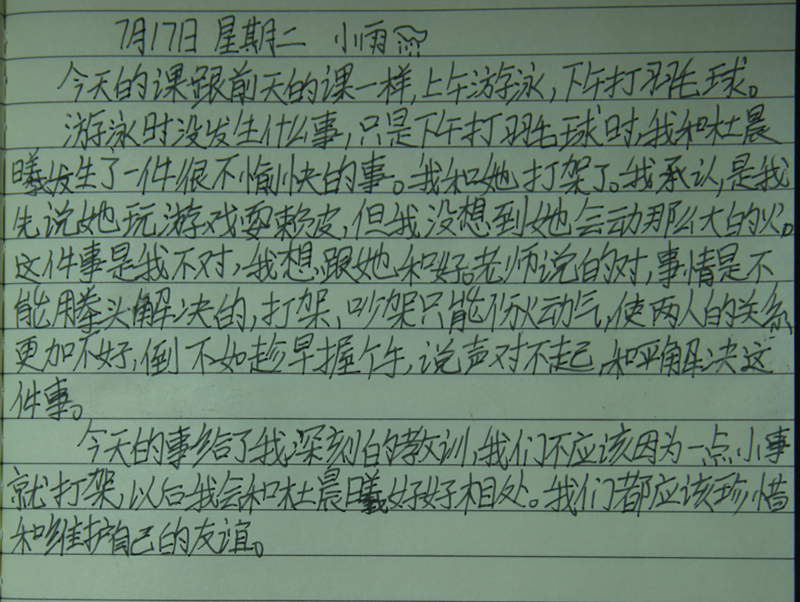 7月17日 星期二 小雨
今天的课跟前天的课一样,上午游泳,下午打羽毛球。
游泳时没发生什么事,只是下午打羽毛球时,我和杜晨
曦发生了一件很不愉快的事。我和她打架了。我承认,是我
先说她玩游戏耍赖皮,但我没想到她会动那么大的火。
这件事是我不对,我想跟她和好。老师说的对,事情是不
能用拳头解决的,打架、吵架只能伤动气,使两人的关系
更加不好,倒不如趁早握个手,说声对不起,和平解决这
件事。
今天的事给了我深刻的教训,我们不应该因为一点小事
就打架,以后我会和杜晨曦好好相处。我们都应该珍惜
和维护自己的友谊。